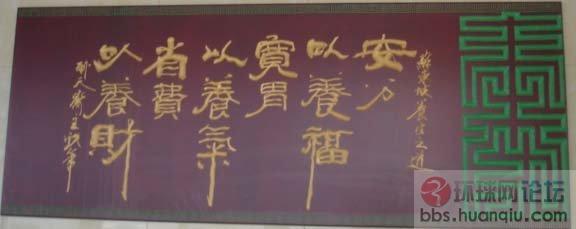 蘇東坡養生之道
安分
以養福
寬胃
以養氣
省費
以養財
环球网论坛
bbs.huanqiu.com